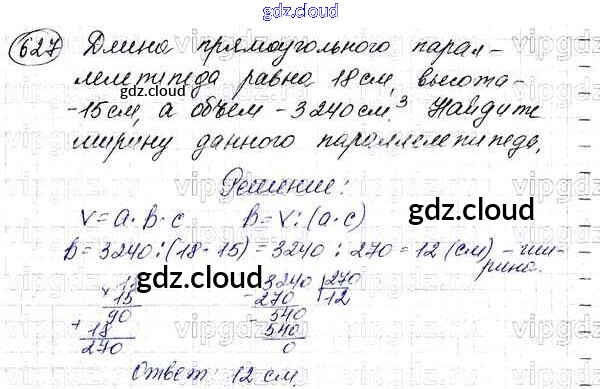 gdz.cloud
627 Длина прямоугольного парал-
лелепипеда равна 18 см, высота -
gdz.cloud
- 15 см, а объем - 3240 см.³ Найдите
ширину данного параллелепипеда.
Решение:
V = a · b · c   b = V : (a · c)
gdz.cloud
b = 3240 : (18 · 15) = 3240 : 270 = 12 (см) - ши-
рина.
gdz.cloud
× 18   - 3240 | 270
15   270   12
90   - 540
+ 18   540
270   0
gdz.cloud
Ответ: 12 см
gdz.cloud